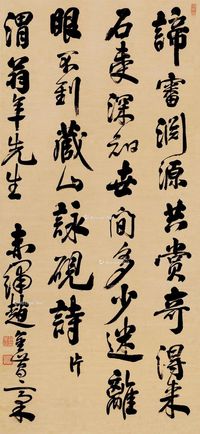 諦審淵源共賞奇得來
石深知世間多少迷離
眼不到藏山詠硯詩片
渭翁年先生 趙